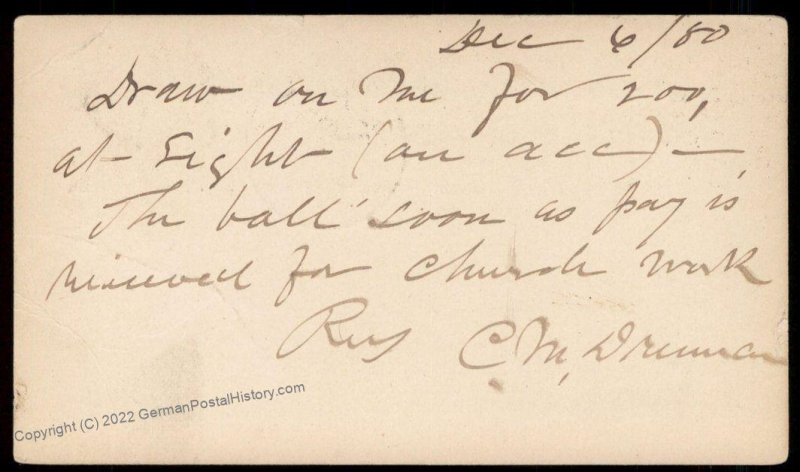 Dec 6/80
Draw on Me for 200,
at Sight (on acc) —
The ball' soon as pay is
received for Church work
Resp C. M. Drennan
Copyright (C) 2022 GermanPostalHistory.com